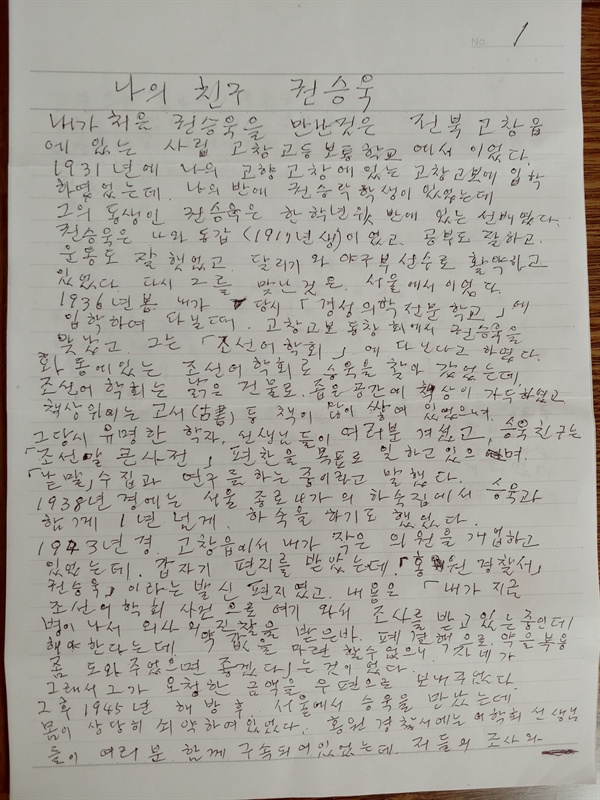 No. 1
나의 친구 권승욱
내가 처음 권승욱을 만난것은 전북 고창읍
에 있는 사립 고창고등보통학교 에서 이었다.
1931년에 나의 고향 고창에 있는 고창고보에 입학
하였었는데. 나의 반에 권승락 학생이 있었는데
그의 동생인 권승욱은 한학년 윗 반에 있는 선배였다.
권승욱은 나와 동갑 (1917년생)이였고. 공부도 잘하고.
운동도 잘 했었고. 달리기와 야구부 선수로 활약하고
있었다. 다시 그를 맞난 것은. 서울에서 이었다.
1936년봄 내가 당시 「경성의학전문학교」에
입학하여 다닐때. 고창고보 동창회에서 권승욱을
맞났고 그는 「조선어학회」에 다닌다고 하였다.
화동에있는 조선어학회로 승욱을 찾아 갔었는데,
조선어학회는 낡은 건물로. 좁은 공간에 책상이 가득하였고
책상위에는 고서(古書)등 책이 많이 쌓여 있었으며.
그당시 유명한 학자, 선생님들이 여러분 계셨고, 승욱친구는
「조선말 큰사전」 편찬을 목표로 일하고 있으며.
「낱말」수집과 연구를 하는 중이라고 말했다.
1938년 경에는 서울 종로4가의 하숙집에서 승욱과
함께 1년 넘게. 하숙을 하기도 했었다.
1943년경. 고창읍에서 내가 작은 의원을 개업하고
있었는데. 갑자기 편지를 받았는데.「홍원경찰서」
권승욱」이라는 발신 편지였고. 내용은 「내가 지금
조선어학회 사건으로 여기 와서 조사를 받고 있는중인데
병이 나서 의사의 진찰을 받은바. 폐결핵으로. 약을 복용
해야한다는데 약값을 마련 할수없으니, 자네가
좀 도와주었으면 좋겠다」는 것이었다.
그래서 그가 요청한 금액을 우편으로 보내주었다
그후 1945년 해방후 서울에서 승욱을 만났는데
몸이 상당히 쇠약하여있었다. 홍원 경찰서에는 어학회 선생님
들이 여러분 함께 구속되어있었는데. 저들의 조사와